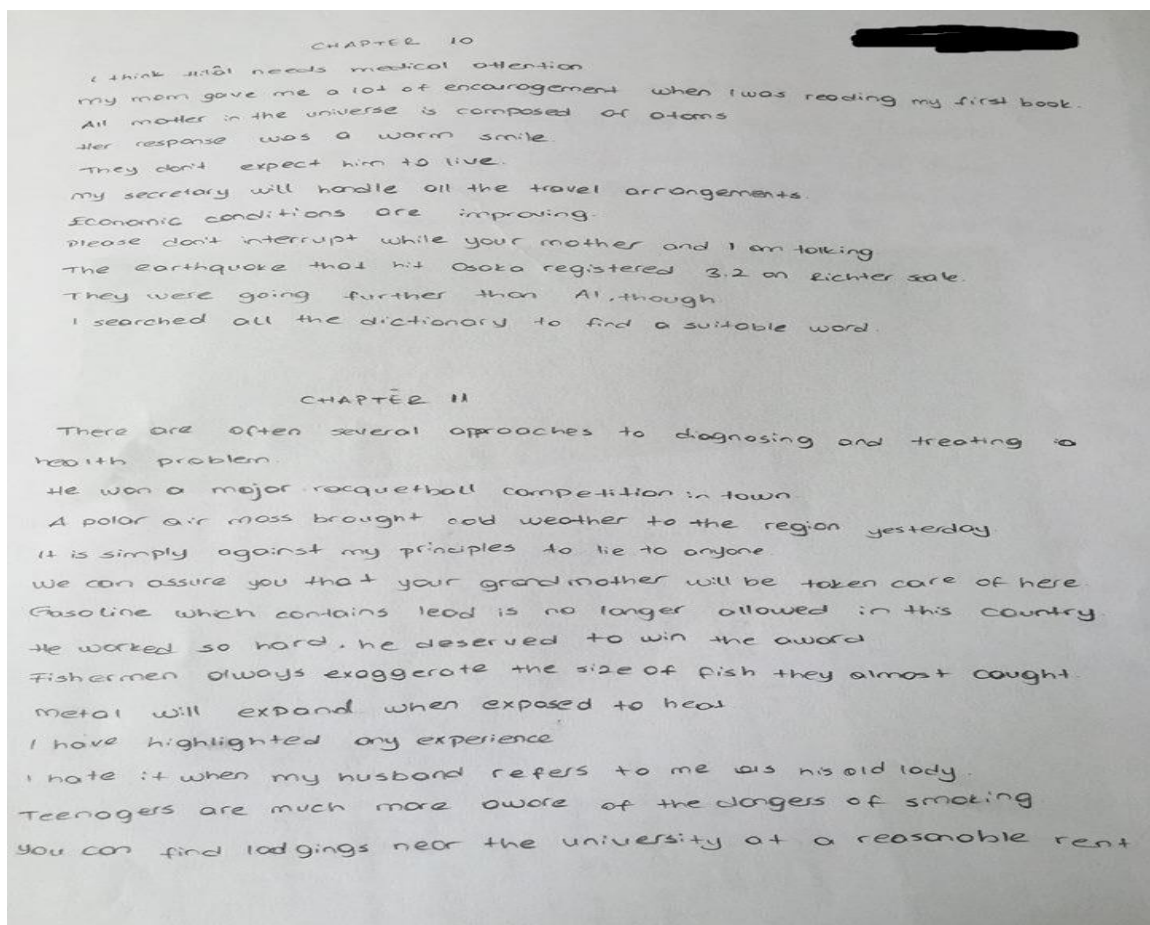 CHAPTER 10
I think needs medical attention
my mom gave me a lot of encouragement when I was reading my first book.
All matter in the universe is composed of atoms
Her response was a warm smile.
They don't expect him to live.
my secretary will handle all the travel arrangements.
Economic conditions are improving.
Please don't interrupt while your mother and I am talking
The earthquake that hit Osaka registered 3.2 on Richter scale.
They were going further than Al, though
I searched all the dictionary to find a suitable word.
CHAPTER 11
There are often several approaches to diagnosing and treating a
health problem.
He won a major racquetball competition in town.
A polar air mass brought cold weather to the region yesterday.
It is simply against my principles to lie to anyone.
We can assure you that your grandmother will be taken care of here.
Gasoline which contains lead is no longer allowed in this country.
He worked so hard, he deserved to win the award
Fishermen always exaggerate the size of fish they almost caught.
metal will expand when exposed to heat
I have highlighted any experience
I hate it when my husband refers to me as his old lady.
Teenagers are much more aware of the dangers of smoking
you can find lodgings near the university at a reasonable rent